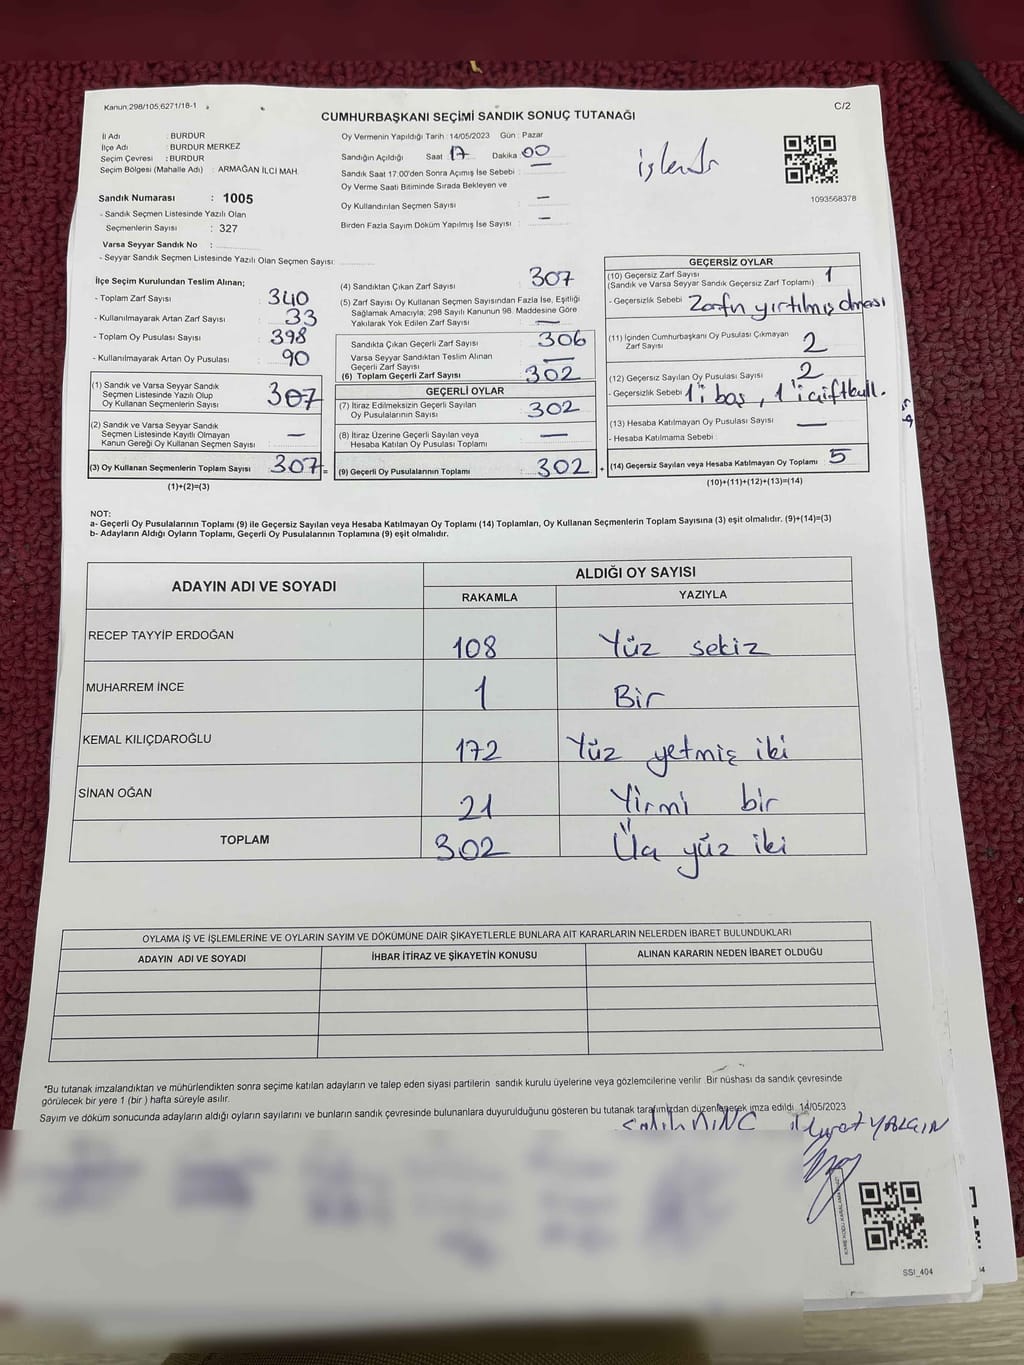 Kanun 298/105 6271/18-1
C/2
CUMHURBAŞKANI SEÇİMİ SANDIK SONUÇ TUTANAĞI
İl Adı : BURDUR
İlçe Adı : BURDUR MERKEZ
Seçim Çevresi : BURDUR
Seçim Bölgesi (Mahalle Adı) : ARMAĞAN İLCİ MAH.
Sandık Numarası : 1005
- Sandık Seçmen Listesinde Yazılı Olan
Seçmenlerin Sayısı : 327
Varsa Seyyar Sandık No :
- Seyyar Sandık Seçmen Listesinde Yazılı Olan Seçmen Sayısı:
Oy Vermenin Yapıldığı Tarih : 14/05/2023 Gün : Pazar
Sandığın Açıldığı Saat 17 Dakika 00
Sandık Saat 17.00'den Sonra Açımış İse Sebebi :
Oy Verme Saati Bitiminde Sırada Bekleyen ve
Oy Kullandırılan Seçmen Sayısı : —
Birden Fazla Sayım Döküm Yapılmış İse Sayısı : —
işlendi
1093568378
İlçe Seçim Kurulundan Teslim Alınan;
- Toplam Zarf Sayısı : 340
- Kullanılmayarak Artan Zarf Sayısı : 33
- Toplam Oy Pusulası Sayısı : 398
- Kullanılmayarak Artan Oy Pusulası : 90
(1) Sandık ve Varsa Seyyar Sandık
Seçmen Listesinde Yazılı Olup
Oy Kullanan Seçmenlerin Sayısı : 307
(2) Sandık ve Varsa Seyyar Sandık
Seçmen Listesinde Kayıtlı Olmayan
Kanun Gereği Oy Kullanan Seçmen Sayısı : —
(3) Oy Kullanan Seçmenlerin Toplam Sayısı : 307 =
(1)+(2)=(3)
(4) Sandıktan Çıkan Zarf Sayısı : 307
(5) Zarf Sayısı Oy Kullanan Seçmen Sayısından Fazla İse, Eşitliği
Sağlamak Amacıyla, 298 Sayılı Kanunun 98. Maddesine Göre
Yakılarak Yok Edilen Zarf Sayısı : —
Sandıkta Çıkan Geçerli Zarf Sayısı : 306
Varsa Seyyar Sandıktan Teslim Alınan
Geçerli Zarf Sayısı : —
(6) Toplam Geçerli Zarf Sayısı : 302
GEÇERLİ OYLAR
(7) İtiraz Edilmeksizin Geçerli Sayılan
Oy Pusulalarının Sayısı : 302
(8) İtiraz Üzerine Geçerli Sayılan veya
Hesaba Katılan Oy Pusulası Toplamı : —
(9) Geçerli Oy Pusulalarının Toplamı : 302 +
GEÇERSİZ OYLAR
(10) Geçersiz Zarf Sayısı : 1
(Sandık ve Varsa Seyyar Sandık Geçersiz Zarf Toplamı)
- Geçersizlik Sebebi : Zarfın yırtılmış olması
(11) İçinden Cumhurbaşkanı Oy Pusulası Çıkmayan
Zarf Sayısı : 2
(12) Geçersiz Sayılan Oy Pusulası Sayısı : 2
- Geçersizlik Sebebi : 1'i boş, 1'i çiftkull.
(13) Hesaba Katılmayan Oy Pusulası Sayısı : —
- Hesaba Katılmama Sebebi :
(14) Geçersiz Sayılan veya Hesaba Katılmayan Oy Toplamı : 5
(10)+(11)+(12)+(13)=(14)
NOT:
a- Geçerli Oy Pusulalarının Toplamı (9) ile Geçersiz Sayılan veya Hesaba Katılmayan Oy Toplamı (14) Toplamları, Oy Kullanan Seçmenlerin Toplam Sayısına (3) eşit olmalıdır. (9)+(14)=(3)
b- Adayların Aldığı Oyların Toplamı, Geçerli Oy Pusulalarının Toplamına (9) eşit olmalıdır.
ADAYIN ADI VE SOYADI
ALDIĞI OY SAYISI
RAKAMLA YAZIYLA
RECEP TAYYİP ERDOĞAN 108 Yüz sekiz
MUHARREM İNCE 1 Bir
KEMAL KILIÇDAROĞLU 172 Yüz yetmiş iki
SİNAN OĞAN 21 Yirmi bir
TOPLAM 302 Üç yüz iki
OYLAMA İŞ VE İŞLEMLERİNE VE OYLARIN SAYIM VE DÖKÜMÜNE DAİR ŞİKAYETLERLE BUNLARA AİT KARARLARIN NELERDEN İBARET BULUNDUKLARI
ADAYIN ADI VE SOYADI İHBAR İTİRAZ VE ŞİKAYETİN KONUSU ALINAN KARARIN NEDEN İBARET OLDUĞU
*Bu tutanak imzalandıktan ve mühürlendikten sonra seçime katılan adayların ve talep eden siyasi partilerin sandık kurulu üyelerine veya gözlemcilerine verilir. Bir nüshası da sandık çevresinde
görülecek bir yere 1 (bir) hafta süreyle asılır.
Sayım ve döküm sonucunda adayların aldığı oyların sayılarını ve bunların sandık çevresinde bulunanlara duyurulduğunu gösteren bu tutanak tarafımızdan düzenlenerek imza edildi. 14/05/2023
YALÇIN
SSI_404